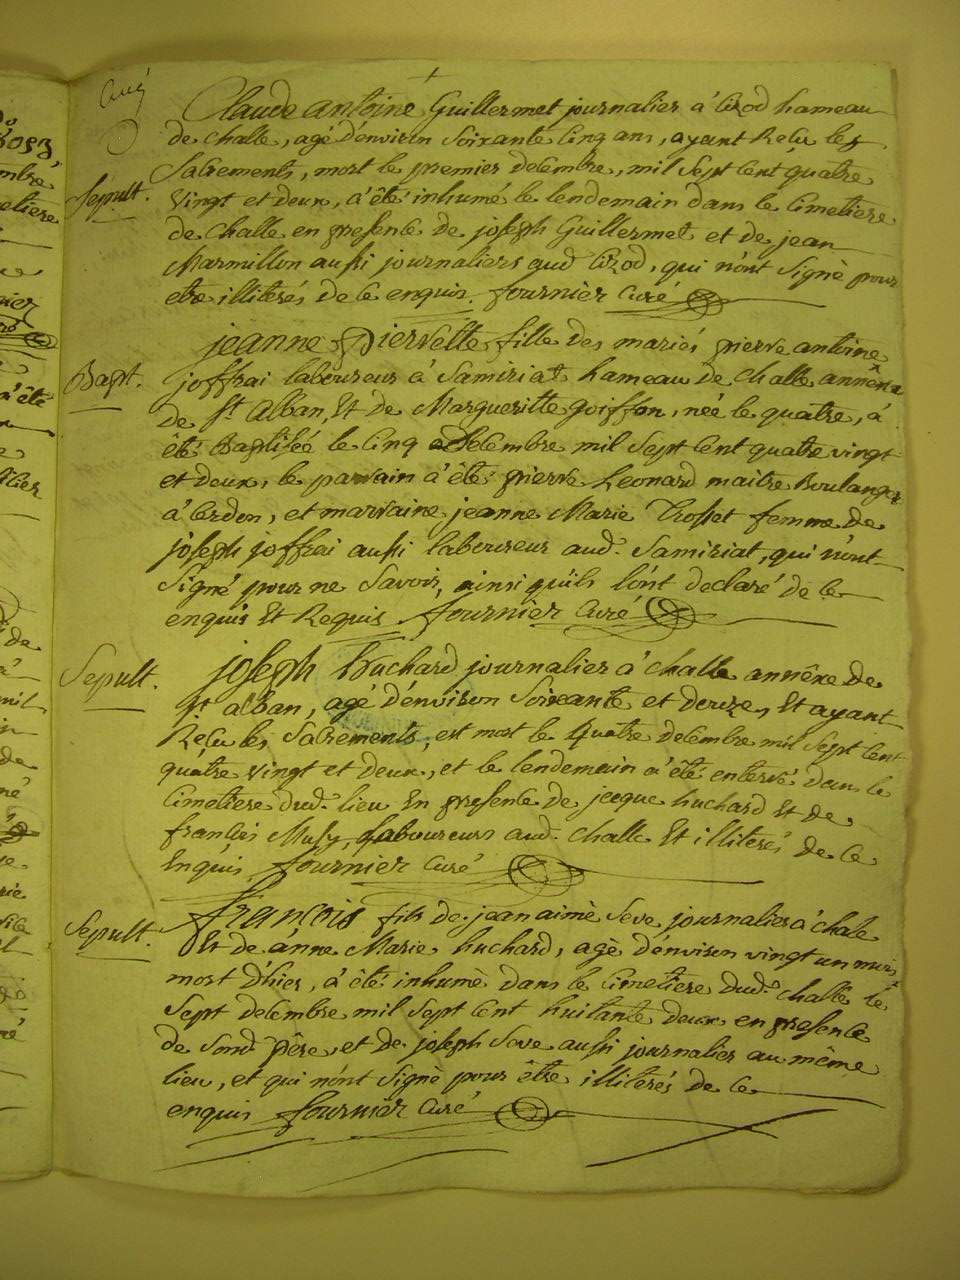 Claude antoine Guillermet journalier à Cizod hameau
de challe, agé d'environ soixante cinq ans, ayant Reçu les
Sepult.
Sacrements, mort le premier decembre, mil sept cent quatre
vingt et deux, à été inhumé le lendemain dans le Cimetiere
de challe en presence de joseph Guillermet et de jean
Marmillon aussi journaliers aud. Cizod, qui n'ont signé pour
etre illiterés de ce enquis. fournier Curé
Bapt.
jeanne Pierrette fille des mariés pierre antoine
joffrai laboureur à Samiriat hameau de challe annêxe
de St. alban, Et de Margueritte goiffon, née le quatre, à
été Baptisée le cinq decembre mil sept cent quatre vingt
et deux, le parrain à été pierre Leonard maitre Boulanger
à Cerdon, et marraine jeanne Marie Trosset femme de
joseph joffrai aussi laboureur aud. Samiriat, qui n'ont
signé pour ne savoir, ainsi qu'ils l'ont declaré de ce
enquis Et Requis fournier Curé
Sepult.
joseph huchard journalier à challe annêxe de
St alban, agé d'environ soixante et douze, Et ayant
Reçu les Sacrements, est mort le quatre decembre mil sept cent
quatre vingt et deux, et le lendemain à été enterré dans le
Cimetiere dud. lieu En presence de jacque huchard Et de
françois Musy, laboureurs aud. challe Et illiterés de ce
Enquis fournier Curé
Sepult.
françois fils de jean aimé Seve journalier à chale
Et de anne Marie huchard, agé d'environ vingt un mois
mort d'hier, à été inhumé dans le Cimetiere dud. challe le
sept decembre mil sept cent huitante deux en presence
de sond. Pêre, et de joseph Seve aussi journalier au même
lieu, et qui n'ont signé pour être illiterés de ce
enquis fournier Curé